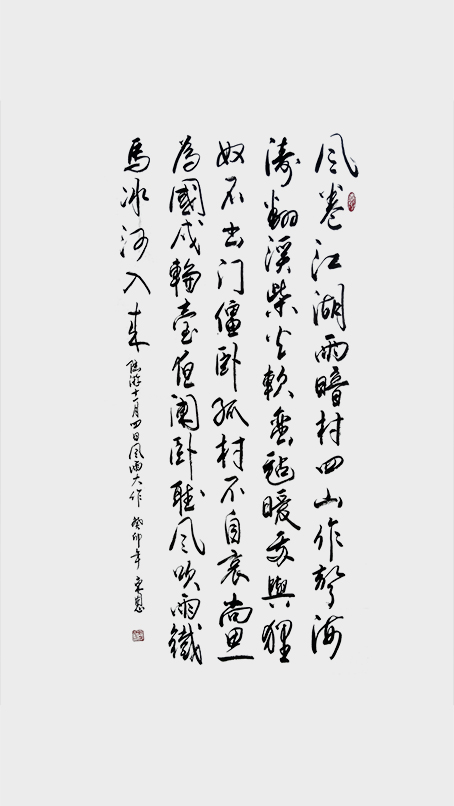 风卷江湖雨暗村四山作聲海
濤翻溪柴火軟蛮毡暖我與狸
奴不出门僵卧孤村不自哀尚思
為國戍輪臺夜闌卧聽风吹雨鐵
馬冰河入来
陸游十一月四日风雨大作 癸卯年